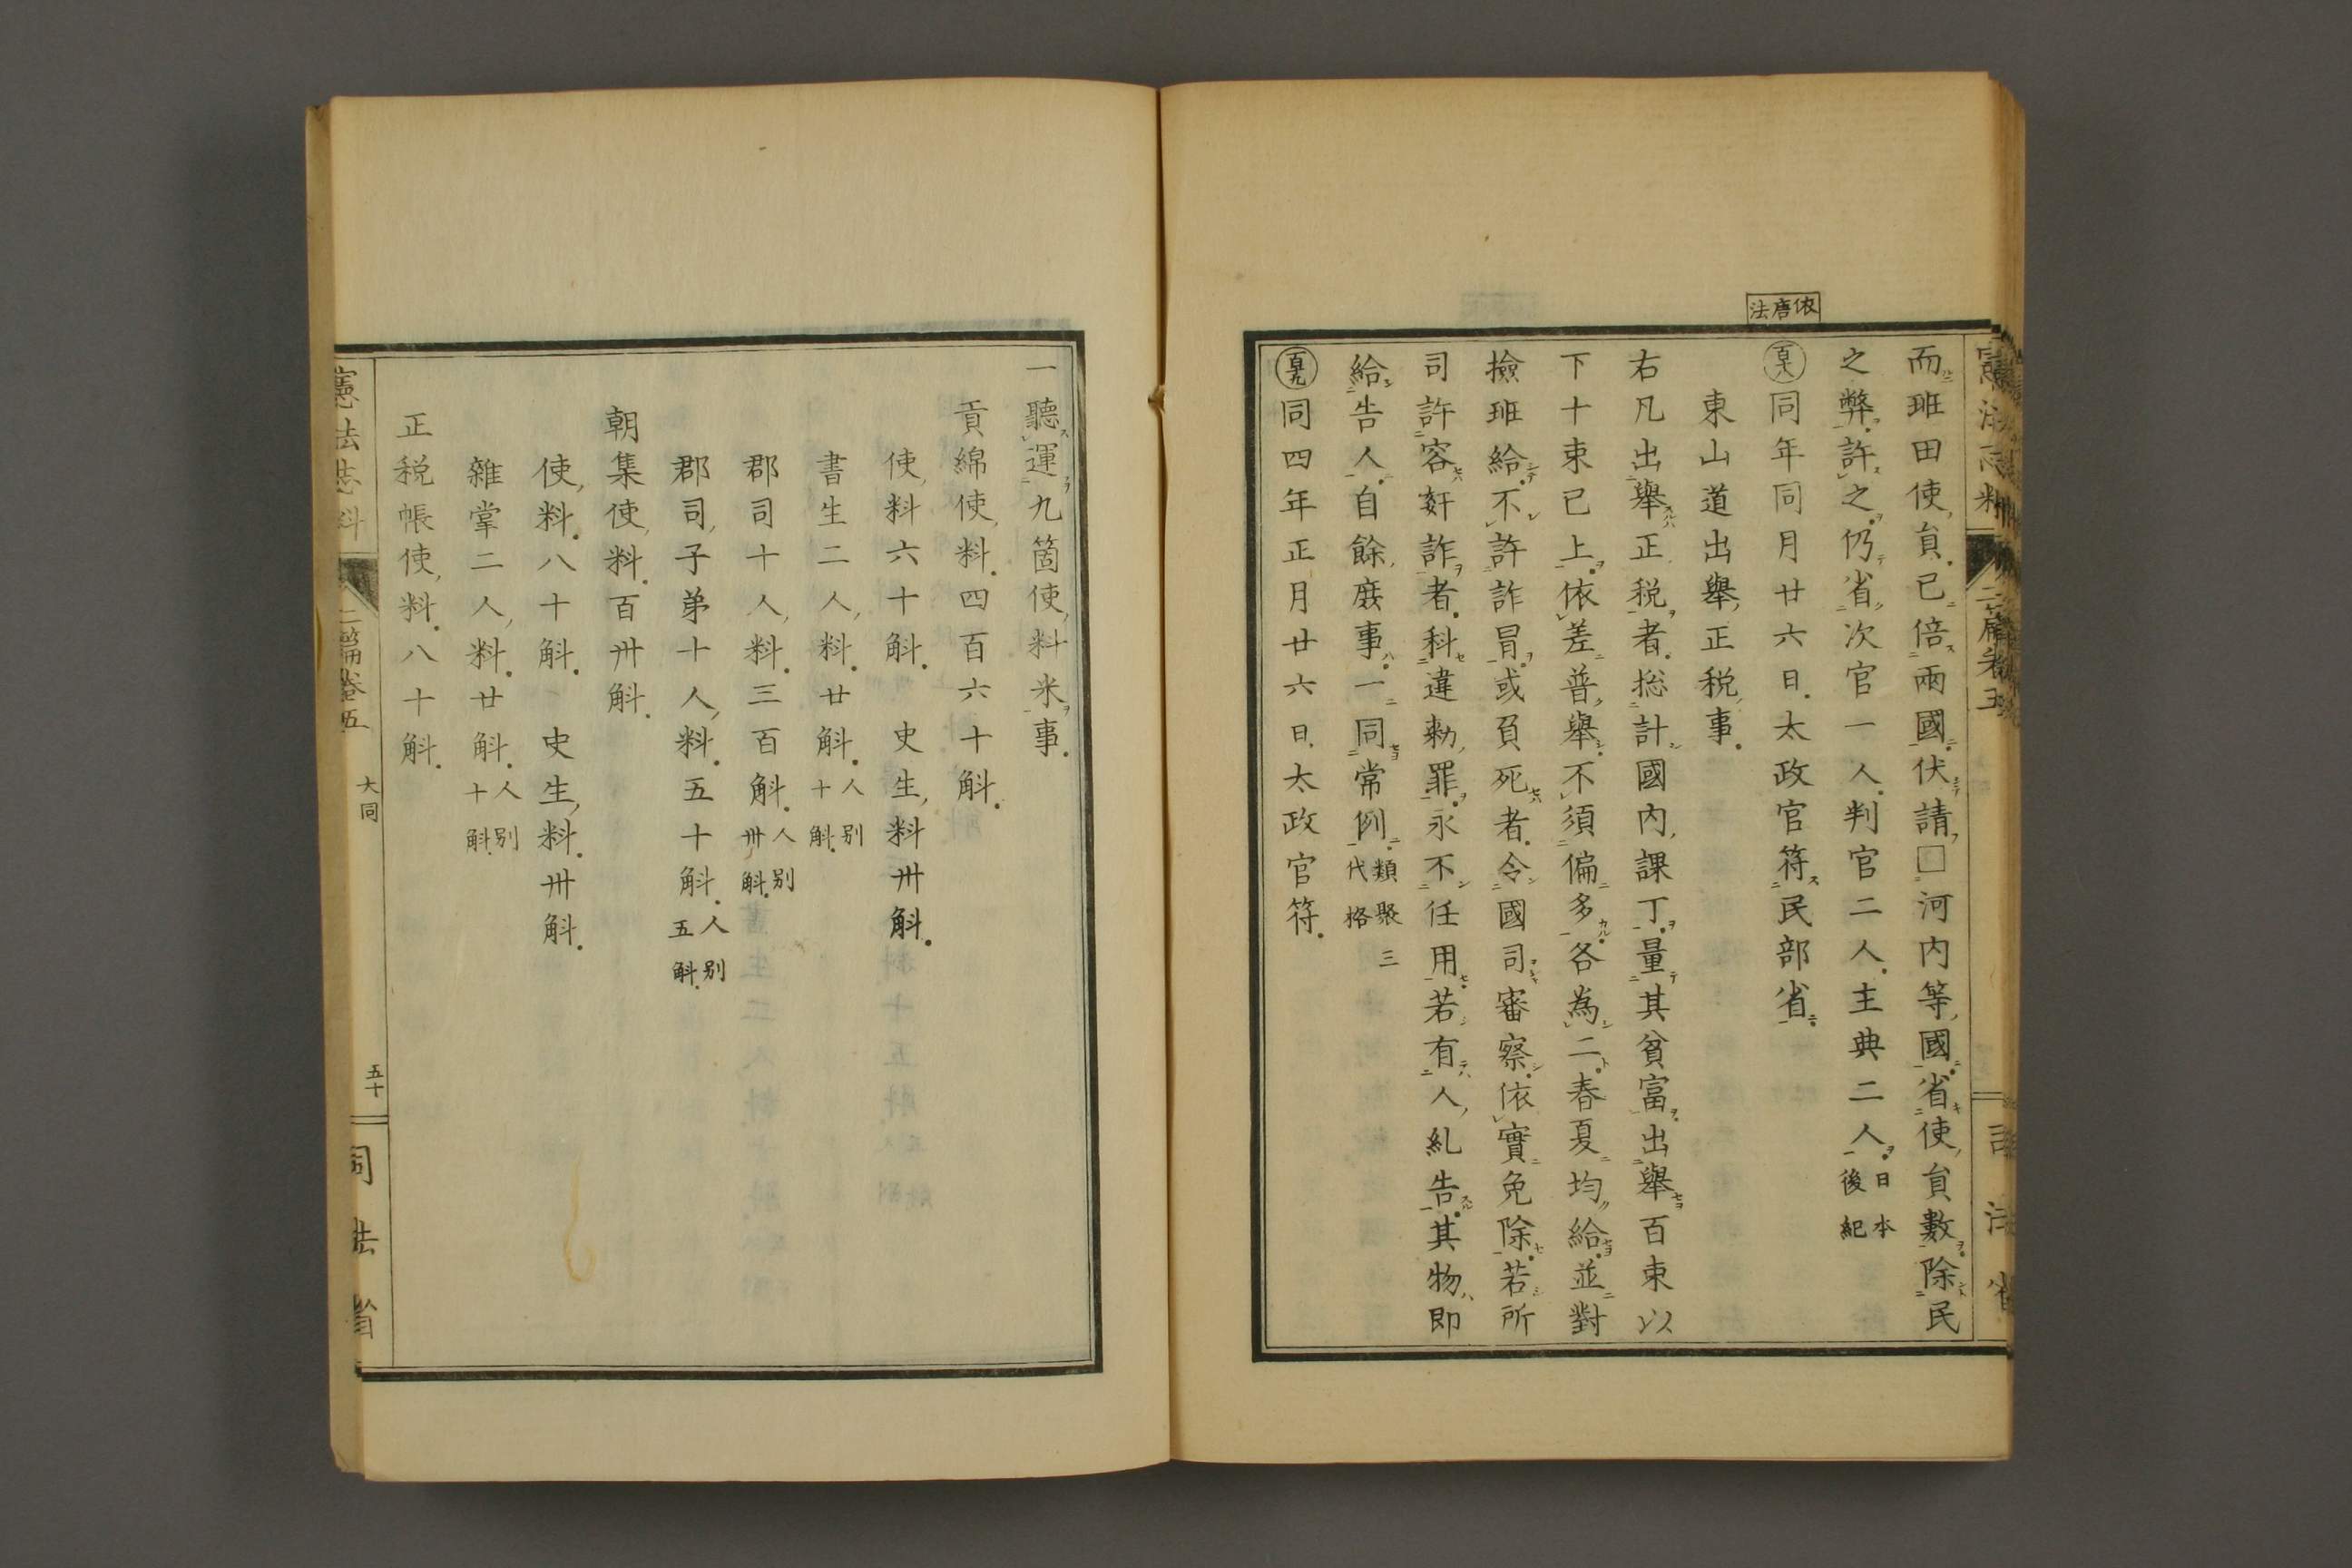 依唐法
而班田使員已倍兩國伏請□河内等國省使員數除民
之弊許之仍省次官一人判官二人主典二人日本後紀
同年同月廿六日太政官符民部省
東山道出舉正税事
右凡出舉正税者捴計國内課丁量其貧富出舉百束以
下十束已上依差普舉不須偏多各為二春夏均給並對
撿班給不許詐冒或負死者令國司審察依實免除若所
司許容姧詐者科違勅罪永不任用若有人糺告其物即
給告人自餘庶事一同常例類聚三代格
同四年正月廿六日太政官符
一聽運九箇使料米事
貢綿使料四百六十斛
使料六十斛 史生料卅斛
書生二人料廿斛人别十斛
郡司十人料三百斛人别卅斛
郡司子弟十人料五十斛人别五斛
朝集使料百卅斛
使料八十斛 史生料卅斛
雜掌二人料廿斛人别十斛
正税帳使料八十斛
憲法志料 二篇卷五 大同 五十 司法省